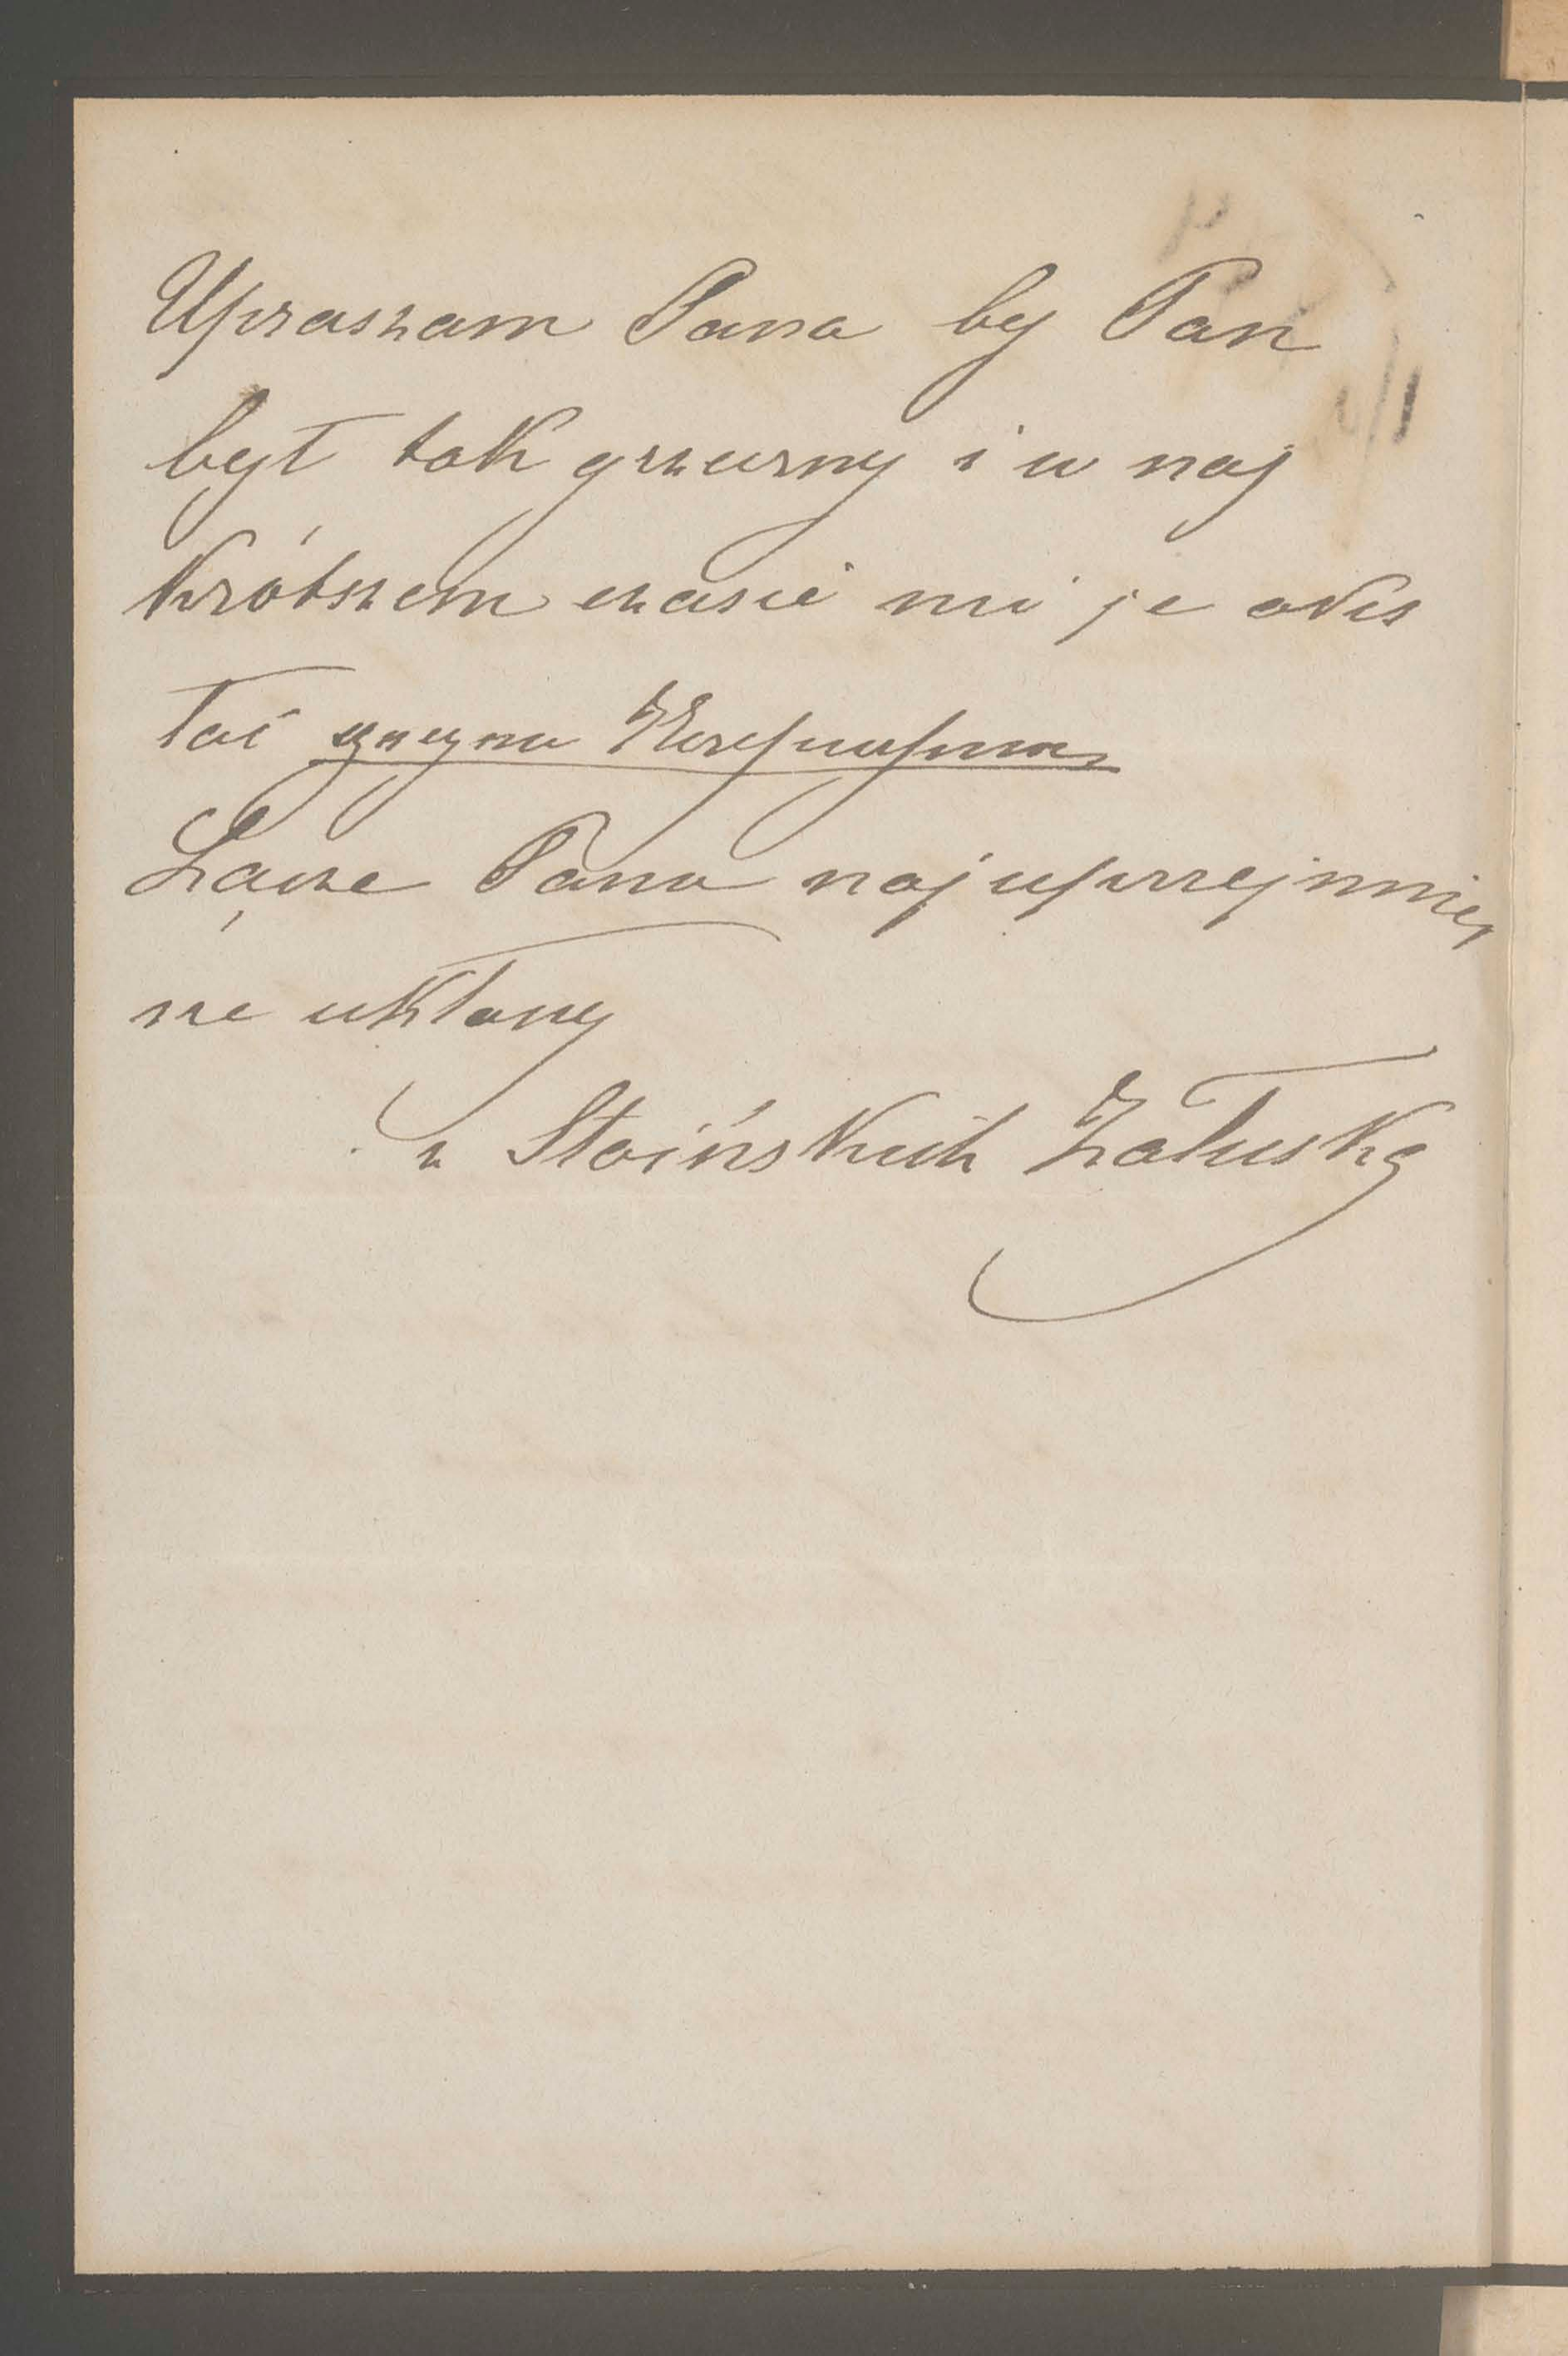 Upraszam Pana by Pan
był tak grzeczny i w naj
krótszem czasie mi je odes
łać
Łącze Panu najuprzejmiej
sze ukłony
z Stoińskich Załuska